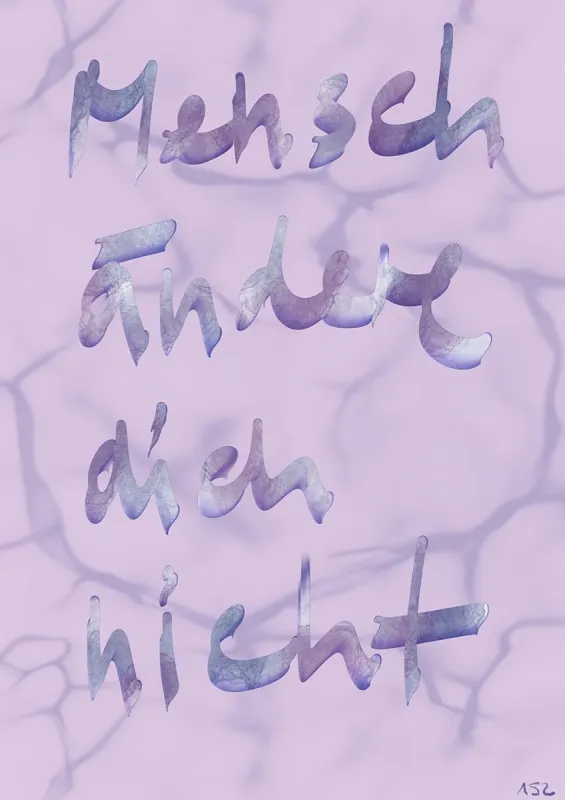 Mensch
ändere
dich
nicht
152